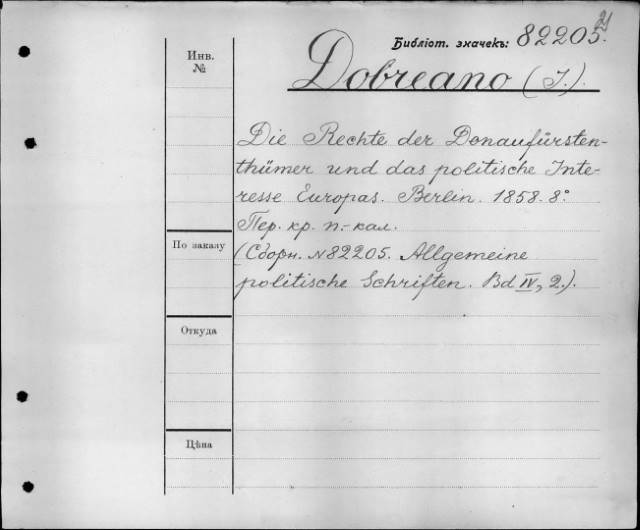 Библіот. значекъ: 82205 21
Инв.
№
Dobreano (J.).
Die Rechte der Donaufürsten-
thümer und das politische Inte-
resse Europas. Berlin. 1858. 8°.
Пер. кр. п.-кал.
По заказу
(Сборн. №82205. Allgemeine
politische Schriften. Bd IV, 2.).
Откуда
Цѣна